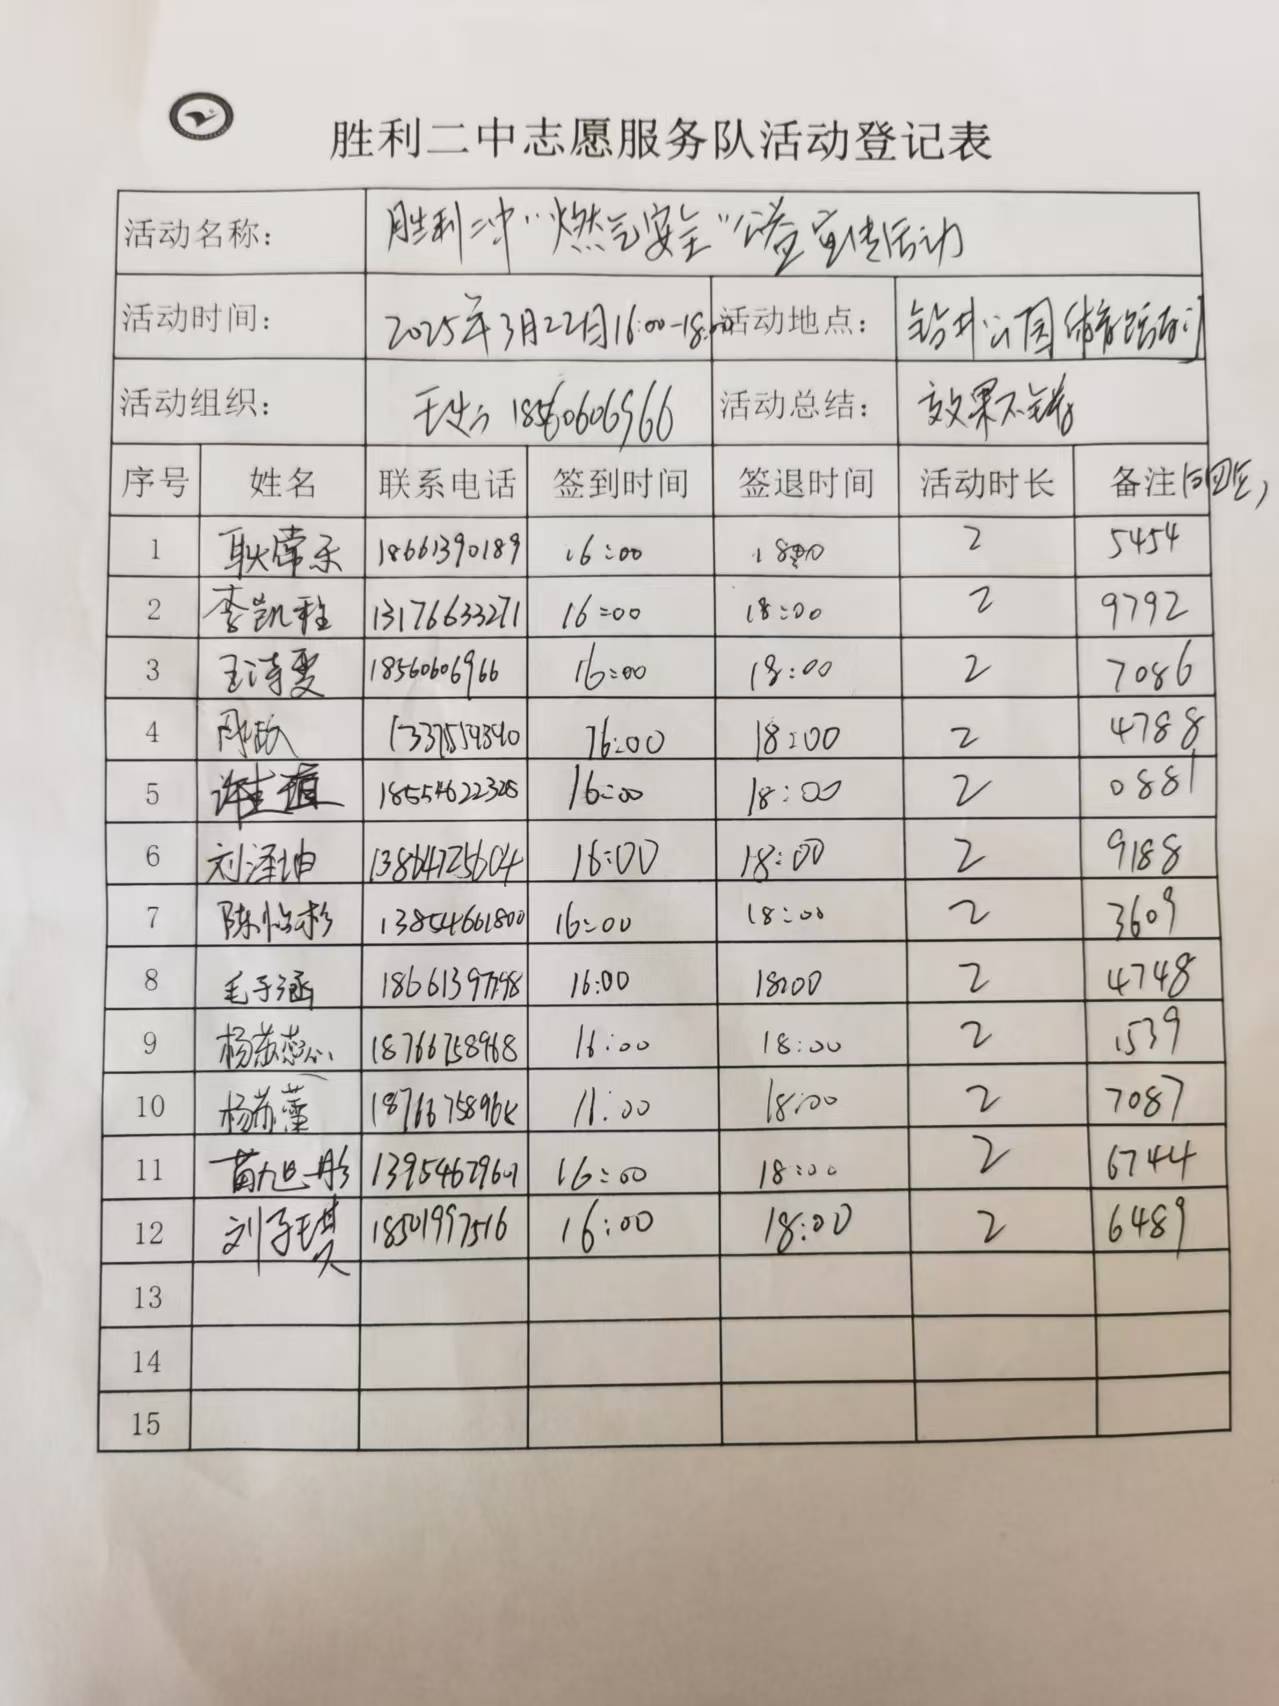 胜利二中志愿服务队活动登记表
活动名称: 胜利二中“燃气安全”公益宣传活动
活动时间: 2025年3月22日16:00-18:00 活动地点: 钻井公园体育场西门
活动组织: 18560606966 活动总结: 效果不错
序号 姓名 联系电话 签到时间 签退时间 活动时长 备注
1 18661390189 16:00 18:00 2 5454
2 李凯程 13176633271 16:00 18:00 2 9792
3 王诗雯 18560606966 16:00 18:00 2 7086
4 16:00 18:00 2 4788
5 18554622328 16:00 18:00 2 0881
6 刘泽坤 13864725604 16:00 18:00 2 9188
7 陈怡杉 13854661800 16:00 18:00 2 3609
8 毛子涵 16:00 18:00 2 4748
9 18766758968 16:00 18:00 2 1539
10 杨苏董 18766758968 11:00 18:00 2 7087
11 苗旭彤 13954679601 16:00 18:00 2 6744
12 刘子琪 18501997516 16:00 18:00 2 6489
13
14
15